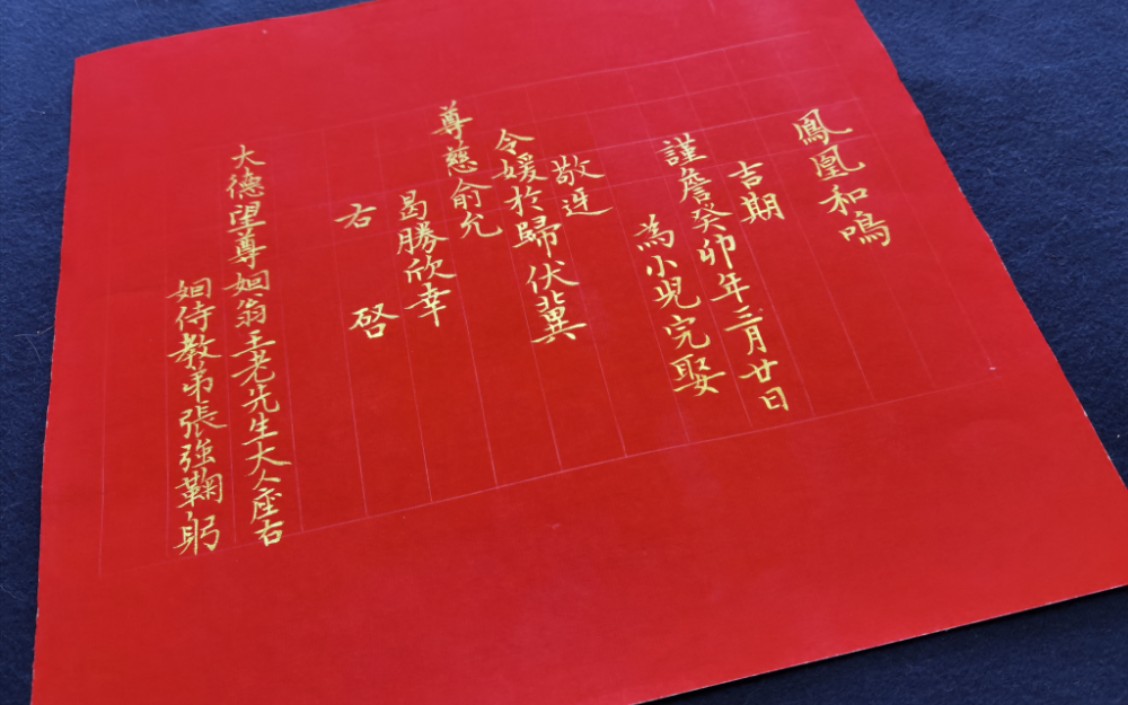 鳳凰和鳴
吉期
謹詹癸卯年三月廿日
為小兒完娶
敬迓
令嫒於歸伏冀
尊慈俞允
曷勝欣幸
右 啓
大德望尊姻翁王老先生大人座右
姻侍教弟張強鞠躬